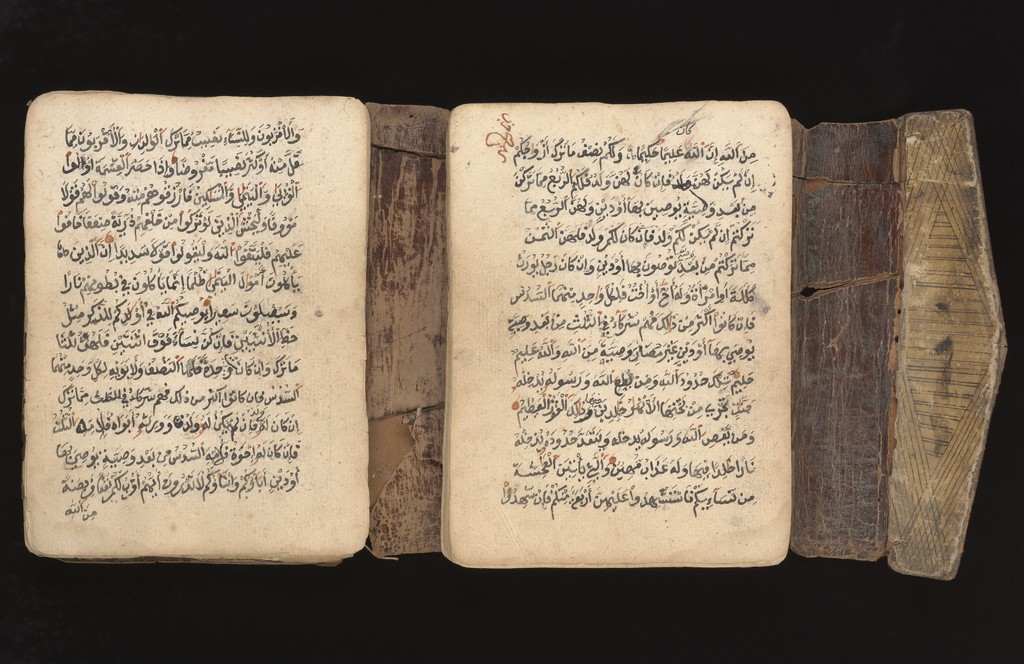 وَالَاقْرَبُونَ وَلِلنِّسَاءِ نَصِيبٌ مِمَّا تَرَكَ الْوَلِدَانِ وَالَاقْرَبُونَ مِمَّا
قَلَّ مِنْهُ أَوْ كَثُرَ نَصِيبًا مَفْرُوضًا وَإِذَا حَضَرَ الْقِسْمَةَ أُوْلُوا
الْقُرْبَى وَالْيَتَمَى وَالْمَسَكِينُ فَارْزُقُوهُمْ مِنْهُ وَقُولُوا لَهُمْ قَوْلًا
مَعْرُوفًا وَلْيَخْشَ الَّذِينَ لَوْ تَرَكُوا مِنْ خَلْفِهِمْ ذُرِّيَّةً ضِعَفًا خَافُوا
عَلَيْهِمْ فَلْيَتَّقُوا اللَّهَ وَلْيَقُولُوا قَوْلًا سَدِيدًا إِنَّ الَّذِينَ
يَأْكُلُونَ أَمْوَالَ الْيَتَمَى ظُلْمًا إِنَّمَا يَأْكُلُونَ فِي بُطُونِهِمْ نَارًا
وَسَيَصْلَوْنَ سَعِيرًا يُوصِيكُمُ اللَّهُ فِي أَوْلَدِكُمْ لِلذَّكَرِ مِثْلُ
حَظِّ الْأُنْثَيَيْنِ فَإِنْ كُنَّ نِسَاءً فَوْقَ اثْنَتَيْنِ فَلَهُنَّ ثُلُثَا
مَا تَرَكَ وَإِنْ كَانَتْ وَحِدَةٌ فَلَهَا النِّصْفُ وَلِأَبَوَيْهِ لِكُلِّ وَحِدٍ مِنْهُمَا
السُّدُسُ مِمَّا تَرَكَ
إِنْ كَانَ لَهُ وَلَدٌ فَإِنْ لَمْ يَكُنْ لَهُ وَلَدٌ وَوَرِثَهُ أَبَوَاهُ فَلِأُمِّهِ الثُّلُثُ
فَإِنْ كَانَ لَهُ إِخْوَةٌ فَلِأُمِّهِ السُّدُسُ مِنْ بَعْدِ وَصِيَّةٍ يُوصِي بِهَا
أَوْ دَيْنٍ آبَاؤُكُمْ وَأَبْنَاؤُكُمْ لَا تَدْرُونَ أَيُّهُمْ أَقْرَبُ لَكُمْ نَفْعًا فَرِيضَةً
مِنَ اللَّهِ
كان
مِنَ اللَّهِ إِنَّ اللَّهَ عَلِيمًا حَكِيمًا وَلَكُمْ نِصْفُ مَا تَرَكَ أَزْوَاجُكُمْ
إِنْ لَمْ يَكُنْ لَهُنَّ وَلَدٌ فَإِنْ كَانَ لَهُنَّ وَلَدٌ فَلَكُمُ الرُّبُعُ مِمَّا تَرَكْنَ
مِنْ بَعْدِ وَصِيَّةٍ يُوصِينَ بِهَا أَوْ دَيْنٍ وَلَهُنَّ الرُّبُعُ مِمَّا
تَرَكْتُمْ إِنْ لَمْ يَكُنْ لَكُمْ وَلَدٌ فَإِنْ كَانَ لَكُمْ وَلَدٌ فَلَهُنَّ الثُّمُنُ
مِمَّا تَرَكْتُمْ مِنْ بَعْدِ تُوصُونَ بِهَا أَوْ دَيْنٍ وَإِنْ كَانَ رَجُلٌ يُورَثُ
كَلَلَةً أَوِ امْرَأَةٌ وَلَهُ أَخٌ أَوْ أُخْتٌ فَلِكُلِّ وَاحِدٍ مِنْهُمَا السُّدُسُ
فَإِنْ كَانُوا أَكْثَرَ مِنْ ذَلِكَ فَهُمْ شُرَكَاءُ فِي الثُّلُثِ مِنْ بَعْدِ وَصِيَّةٍ
يُوصِي بِهَا أَوْ دَيْنٍ غَيْرَ مُضَارٍّ وَصِيَّةً مِنَ اللَّهِ وَاللَّهُ عَلِيمٌ
حَلِيمٌ تِلْكَ حُدُودُ اللَّهِ وَمَنْ يُطِعِ اللَّهَ وَرَسُولَهُ نُدْخِلْهُ
جَنَّتٍ تَجْرِي مِنْ تَحْتِهَا الْأَنْهَرُ خَلِدِينَ فِيهَا وَذَلِكَ الْفَوْزُ الْعَظِيمُ
وَمَنْ يَعْصِ اللَّهَ وَرَسُولَهُ وَيَتَعَدَّ حُدُودَهُ نُدْخِلْهُ
نَارًا خَلِدًا فِيهَا وَلَهُ عَذَابٌ مُهِينٌ وَالَّتِي يَأْتِينَ الْفَحِشَةَ
مِنْ نِسَائِكُمْ فَاسْتَشْهِدُوا عَلَيْهِنَّ أَرْبَعَةً مِنْكُمْ فَإِنْ شَهِدُوا